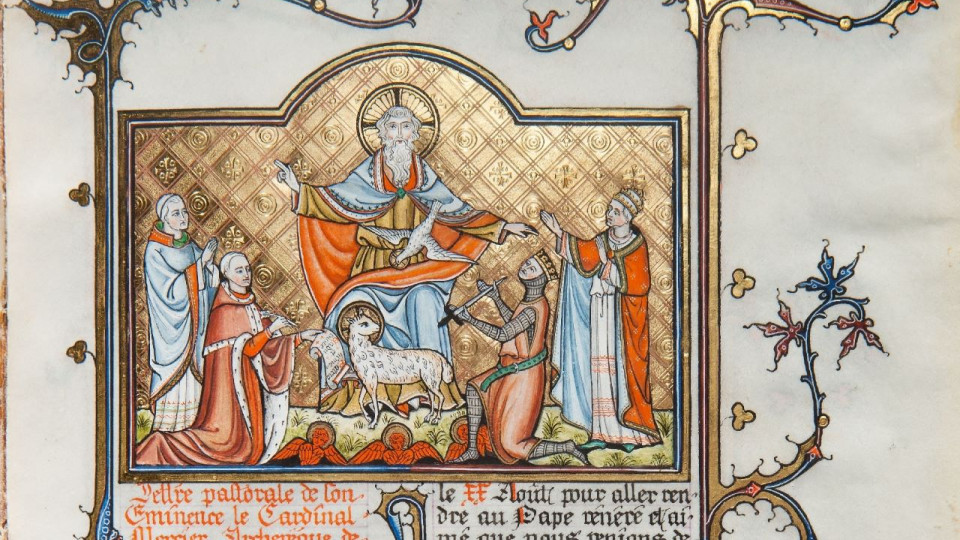 Lettre pastorale de Son
Eminence le Cardinal
Mercier, Archevêque de
le XX Août pour aller ren
dre au Pape vénéré et ai
mé que nous venions de